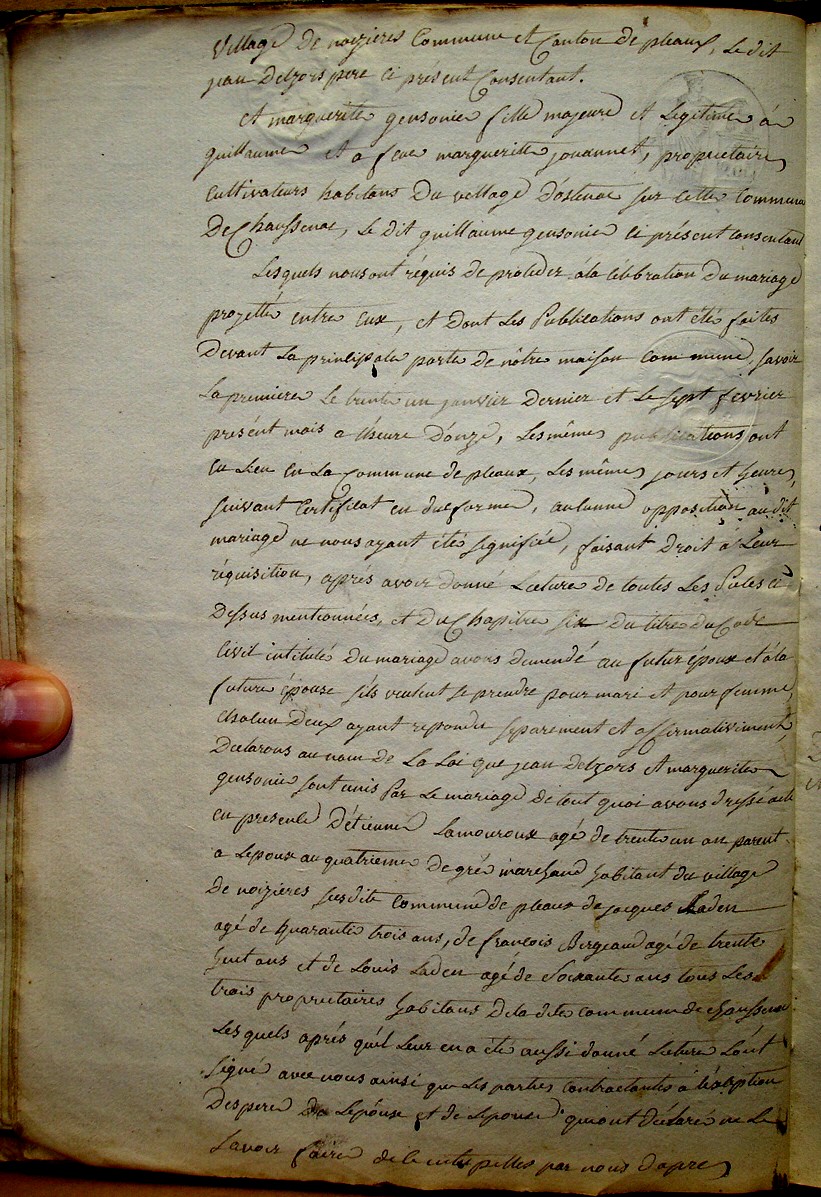 Village de noizieres Commune et Canton de pleaux, Le dit
jean Delzors pere ci présent Consentant.
et marguerite gensonie fille majeure et Legitime à
guillaume et a feue margueritte jouannet, proprietaires
Cultivateurs habitans Du vellage d'ostenac sur cette Commune
De Chaussenac, Le dit guillaume gensonie ci présent consentant
Lesquels nous ont réquis de proceder à la célébration du mariage
projetté entre Eux, et Dont Les Publications ont été faites
Devant La principale porte de nôtre maison commune, savoir
La premiere Le trente un janvier Dernier et Le sept fevrier
present mois a Lheure D'onze, Les mêmes publications ont
eu Lieu en La Commune de pleaux, Les mêmes jours et heures,
suivant Certificat en due forme, aucunne opposition au dit
mariage ne nous ayant été signifiée, faisant Droit à Leur
réquisition, aprés avoir donné Lecture de toutes Les pieces ci
Dessus mentionnées, et du Chapitre six du titre du Code
Civil intitulé du mariage avons demendé au futur époux et à la
future épouse s'ils veulent se prendre pour mari et pour femme,
chacun Deux ayant repondu séparement et affirmativement
Declarons au nom de La Loi que jean Delzors et marguerite
gensonie sont unis Par Le mariage de tout quoi avons dressé acte
en presence d'étienne Lamouroux agé de trente un an parent
a Lepoux au quatrieme degré marchand habitant du village
de noizieres susdite Commune de pleaux de jacques Laden
agé de quarante trois ans, de françois Bergeaud agé de trente
huit ans et de Louis Laden agé de soixante ans tous Les
trois proprietaires habitans de la dite commune de chaussenac
Les quels aprés qu'il Leur en a été aussi donné Lecture L'ont
signé avec nous ainsi que Les parties contractantes à l'éxception
Des pere De Lepouse et de Lepouse qui ont déclaré ne Le
savoir faire de ce interpellés par nous d'apres